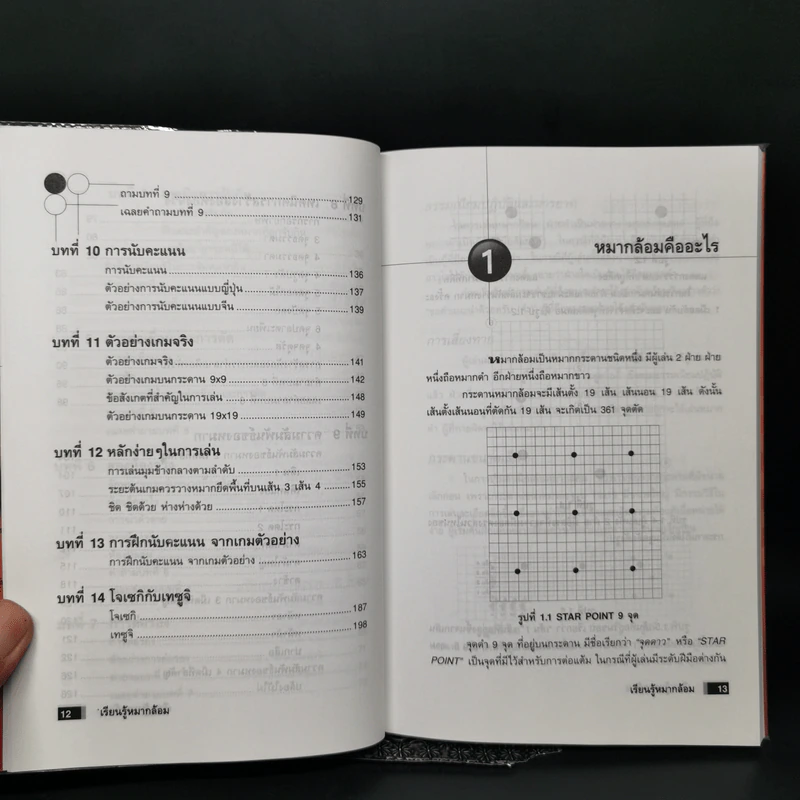 ถามบทที่ 9 ............................ 129
เฉลยคำถามบทที่ 9 ............................ 131
บทที่ 10 การนับคะแนน
การนับคะแนน ............................ 136
ตัวอย่างการนับคะแนนแบบญี่ปุ่น ............................ 137
ตัวอย่างการนับคะแนนแบบจีน ............................ 139
บทที่ 11 ตัวอย่างเกมจริง
ตัวอย่างเกมจริง ............................ 141
ตัวอย่างเกมบนกระดาน 9x9 ............................ 142
ข้อสังเกตที่สำคัญในการเล่น ............................ 148
ตัวอย่างเกมบนกระดาน 19x19 ............................ 149
บทที่ 12 หลักง่ายๆในการเล่น
การเล่นมุมข้างกลางตามลำดับ ............................ 153
ระยะต้นเกมควรวางหมากยึดพื้นที่บนเส้น 3 เส้น 4 ............................ 155
ชิด ชิดด้วย ห่างห่างด้วย ............................ 157
บทที่ 13 การฝึกนับคะแนน จากเกมตัวอย่าง
การฝึกนับคะแนน จากเกมตัวอย่าง ............................ 163
บทที่ 14 โจเซกิกับเทซูจิ
โจเซกิ ............................ 187
เทซูจิ ............................ 198
12 เรียนรู้หมากล้อม
1 หมากล้อมคืออะไร
หมากล้อมเป็นหมากกระดานชนิดหนึ่ง มีผู้เล่น 2 ฝ่าย ฝ่าย
หนึ่งถือหมากดำ อีกฝ่ายหนึ่งถือหมากขาว
กระดานหมากล้อมจะมีเส้นตั้ง 19 เส้น เส้นนอน 19 เส้น ดังนั้น
เส้นตั้งเส้นนอนที่ตัดกัน 19 เส้น จะเกิดเป็น 361 จุดตัด
รูปที่ 1.1 STAR POINT 9 จุด
จุดดำ 9 จุด ที่อยู่บนกระดาน มีชื่อเรียกว่า "จุดดาว" หรือ "STAR
POINT" เป็นจุดที่มีไว้สำหรับการต่อแต้ม ในกรณีที่ผู้เล่นมีระดับฝีมือต่างกัน
เรียนรู้หมากล้อม 13